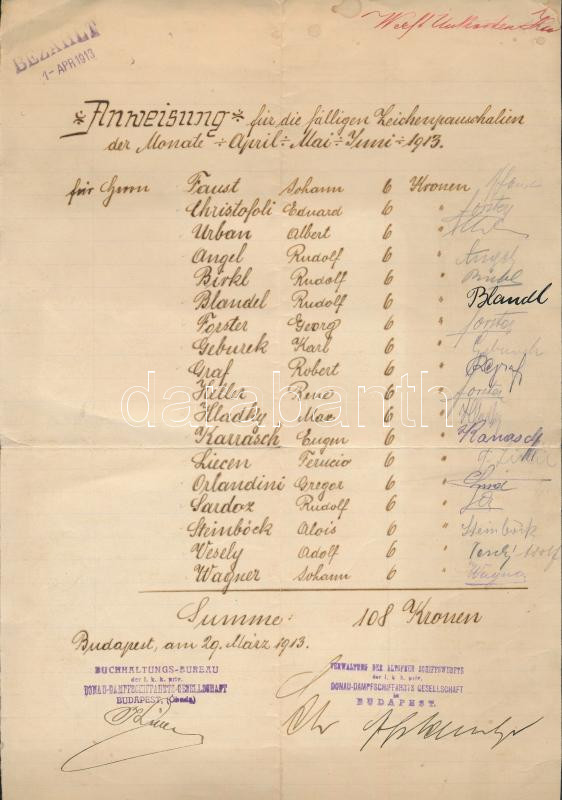 BEZAHLT
1-APR 1913
Anweisung für die fälligen Zeichenpauschalien
der Monate ÷ April ÷ Mai ÷ Juni ÷ 1913.
für Herrn Faust Johann 6 Kronen
Christofoli Eduard 6 " Forster
Urban Albert 6 "
Angel Rudolf 6 " Angel
Birkl Rudolf 6 " Birkl
Blandel Rudolf 6 " Blandl
Forster Georg 6 " Forster
Geburek Karl 6 "
Graf Robert 6 " R Graf
Heller René 6 " Forster
Hladky Max 6 " Hladky
Karrasch Eugen 6 " Karrasch
Liecen Ferucio 6 "
Orlandini Gregor 6 "
Sardoz Rudolf 6 "
Steinböck Alois 6 " Steinböck
Vesely Adolf 6 " Adolf
Wagner Johann 6 " Wagner
Summe: 108 Kronen
Budapest, am 29. März 1913.
BUCHHALTUNGS-BUREAU
der I. k. k. priv.
DONAU-DAMPFSCHIFFAHRTS-GESELLSCHAFT
BUDAPEST, (Óbuda)
VERWALTUNG DER ALTOFNER SCHIFFSWERFTE
der I. k. k. priv.
DONAU-DAMPFSCHIFFAHRTS GESELLSCHAFT
in
BUDAPEST.
darabanth